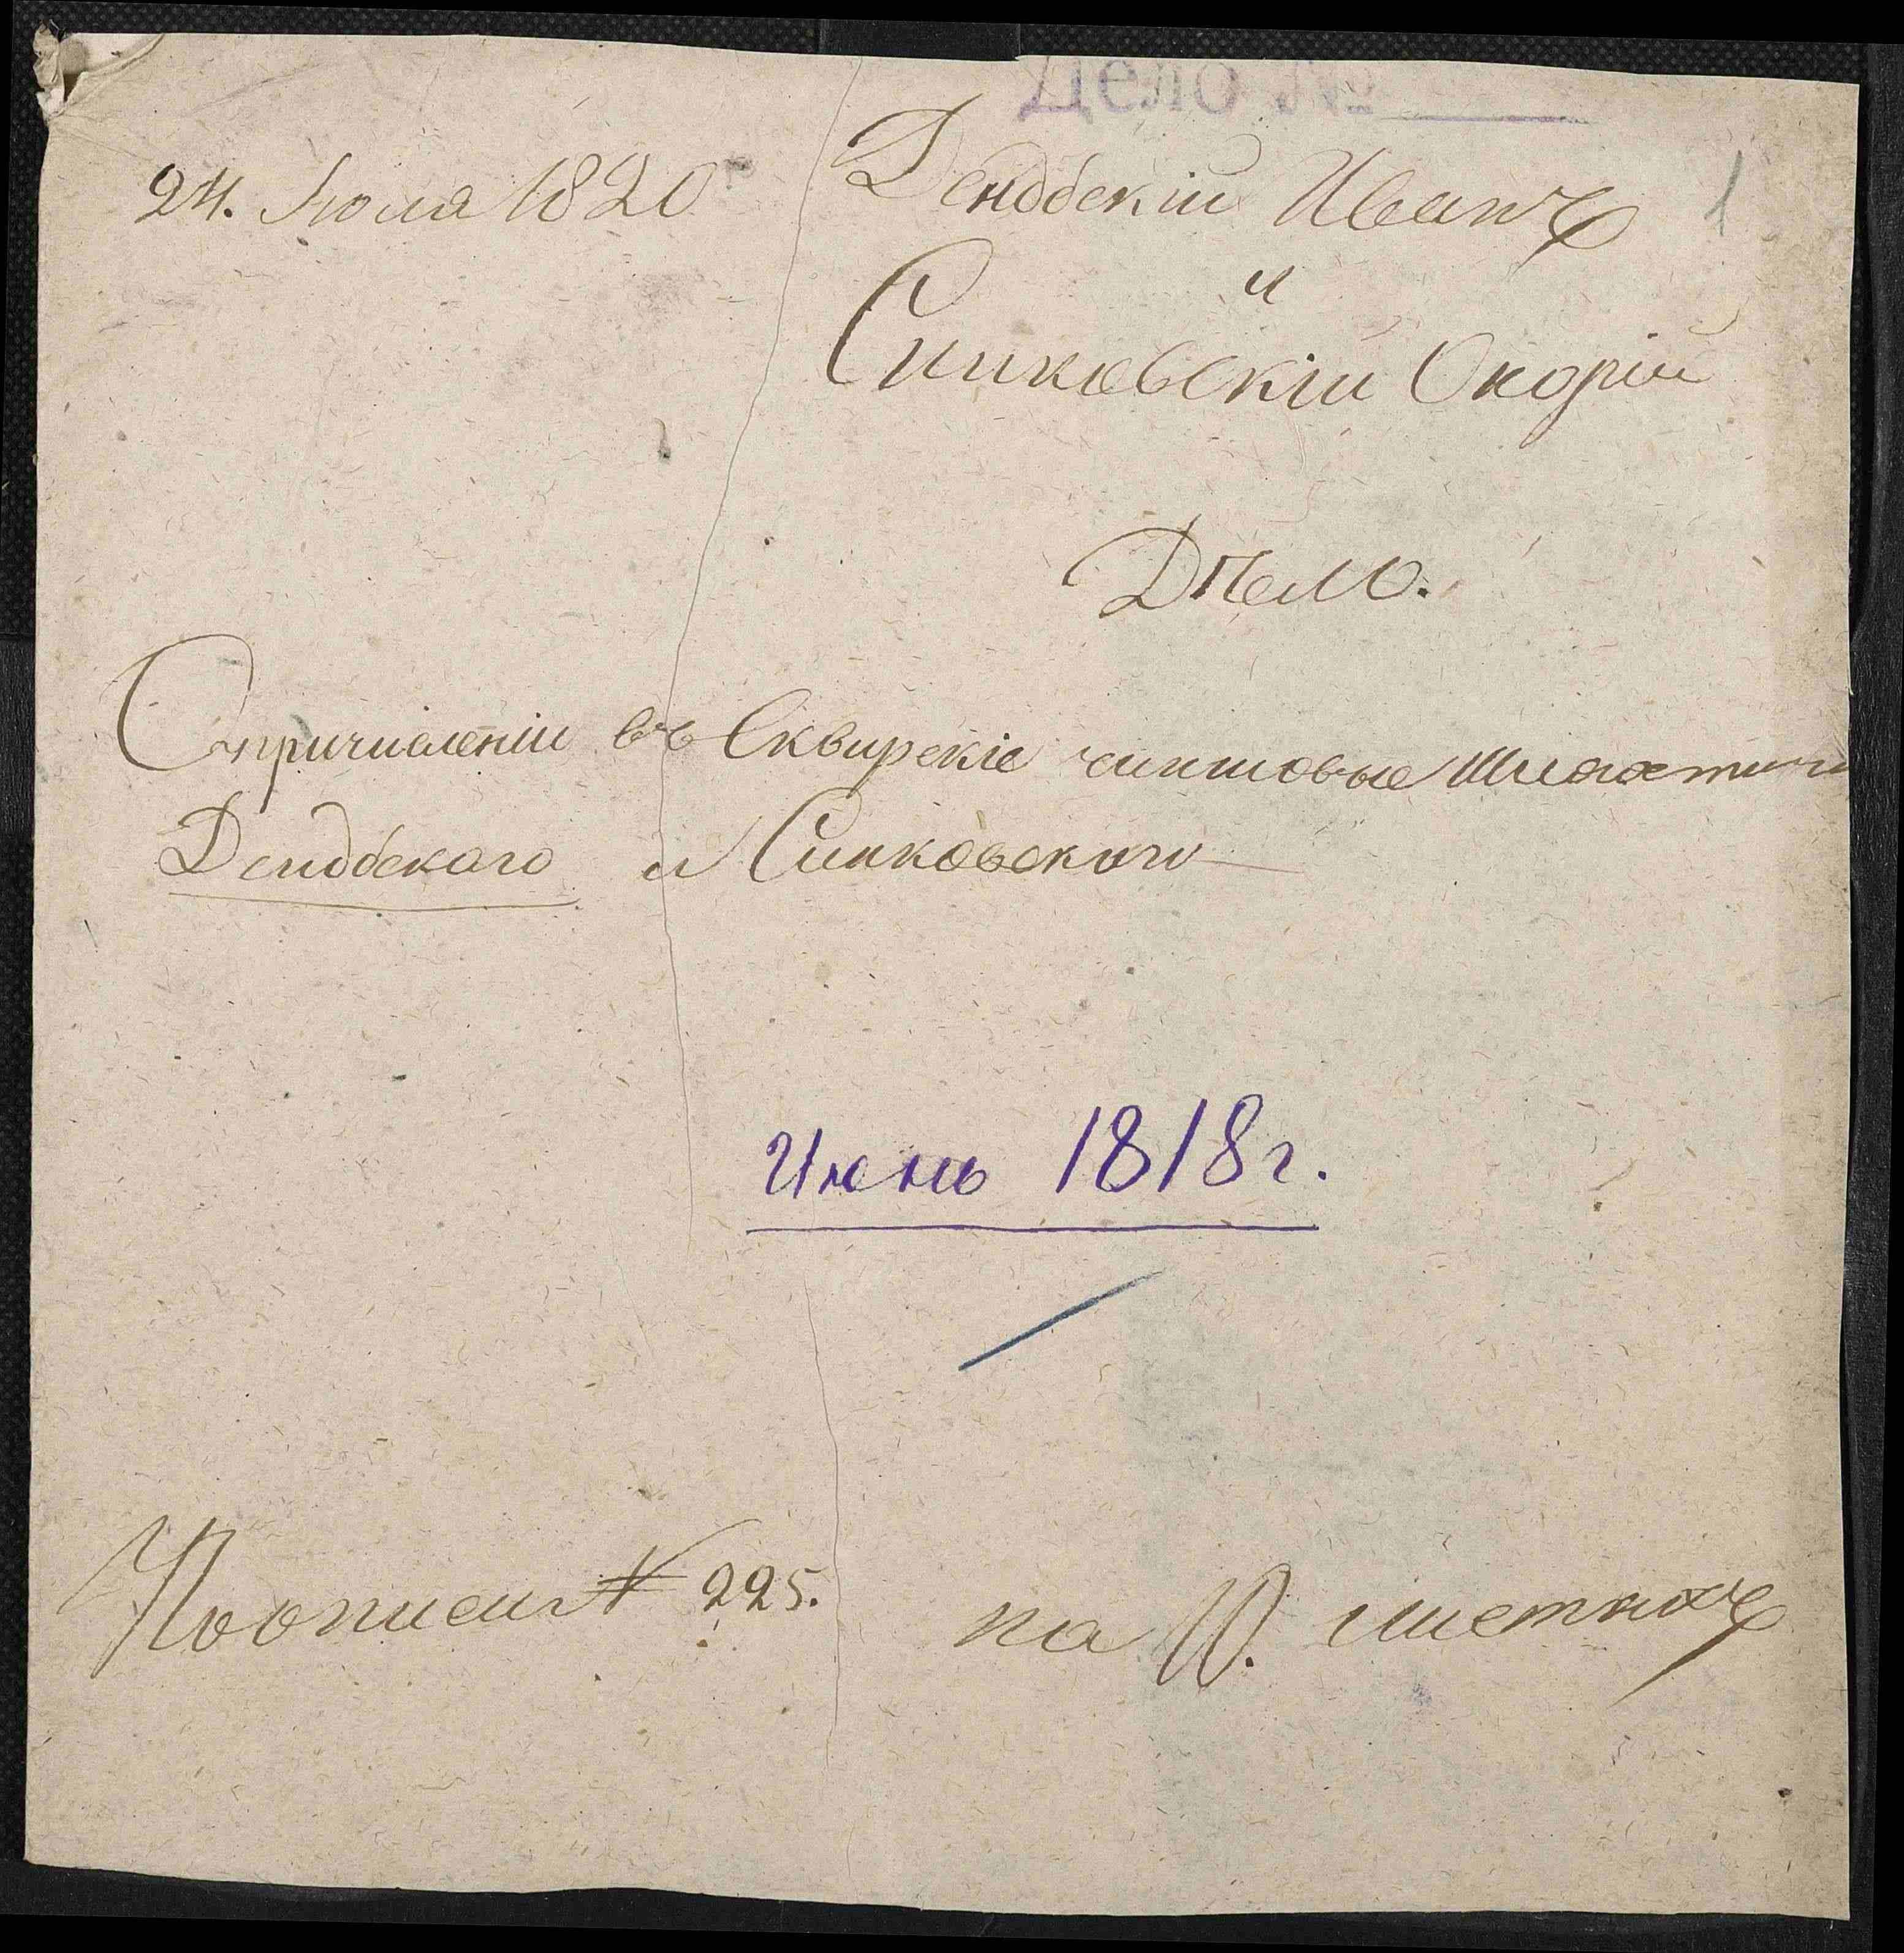 Дело №
24. Июля 1820
Дендбскій Иванъ
1
и
Синковскій Онорій
Дѣло.
О причисленіи въ Сквирскіе чиншовые Шляхтичи
Дендбскаго и Синковскаго
Июнь 1818 г.
По описи № 225.
на 10. листахъ